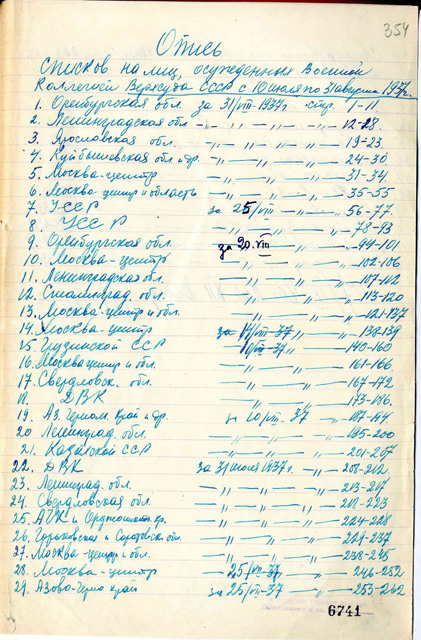 354
Опись
Списков на лиц, осужденных Военной
Коллегией Верхсуда СССР с 10 июля по 31 августа 1937г.
1. Оренбургская обл. за 31/VIII-1937г. стр. 1-11
2. Ленинградская обл. — „ — „ — „ — 12-28.
3. Ярославская обл. — „ — „ — „ — 19-23.
4. Куйбышевская обл. и др. — „ — „ — „ — 24-30
5. Москва-центр — „ — „ — „ — 31-34.
6. Москва центр и область — „ — „ — „ — 35-55
7. УССР за 25/VIII — „ — 56-77.
8. УССР — „ — „ — 78-93
9. Оренбургская обл. за 20.VIII — „ — 94-101
10. Москва-центр — „ — „ — „ — 102-106
11. Ленинградская обл. — „ — „ — „ — 107-112
12. Сталинград. обл. — „ — „ — „ — 113-120
13. Москва-центр и обл. — „ — „ — „ — 121-137
14. Москва-центр за 14/VIII-37 — „ — 138-139
15. Грузинской ССР — „ — 140-160
16. Москва центр и обл. — „ — „ — „ — 161-166
17. Свердловск. обл. — „ — „ — „ — 167-172
18. ДВК — „ — „ — „ — 173-186.
19. Аз. Черном. Край и др. за 10/VIII. 37 — „ — 187-194
20 Ленинград. обл. — „ — „ — „ — 195-200
21. Казахской ССР — „ — „ — „ — 201-207
22. ДВК за 31 июля 1937г. — „ — 208-212
23. Ленинград. обл. — „ — „ — „ — 213-217
24. Свердловская обл. — „ — „ — „ — 218-223
25. АЧК и Орджоникид. кр. — „ — „ — „ — 224-228
26. Горьковская и Саратовск. обл. — „ — „ — „ — 229-237
27. Москва-центр и обл. — „ — „ — „ — 238-245
28. Москва-центр — 25/VII-37 — „ — 246-252
29. Азово-Черно край за 25/VII-37 — „ — 253-262
6741